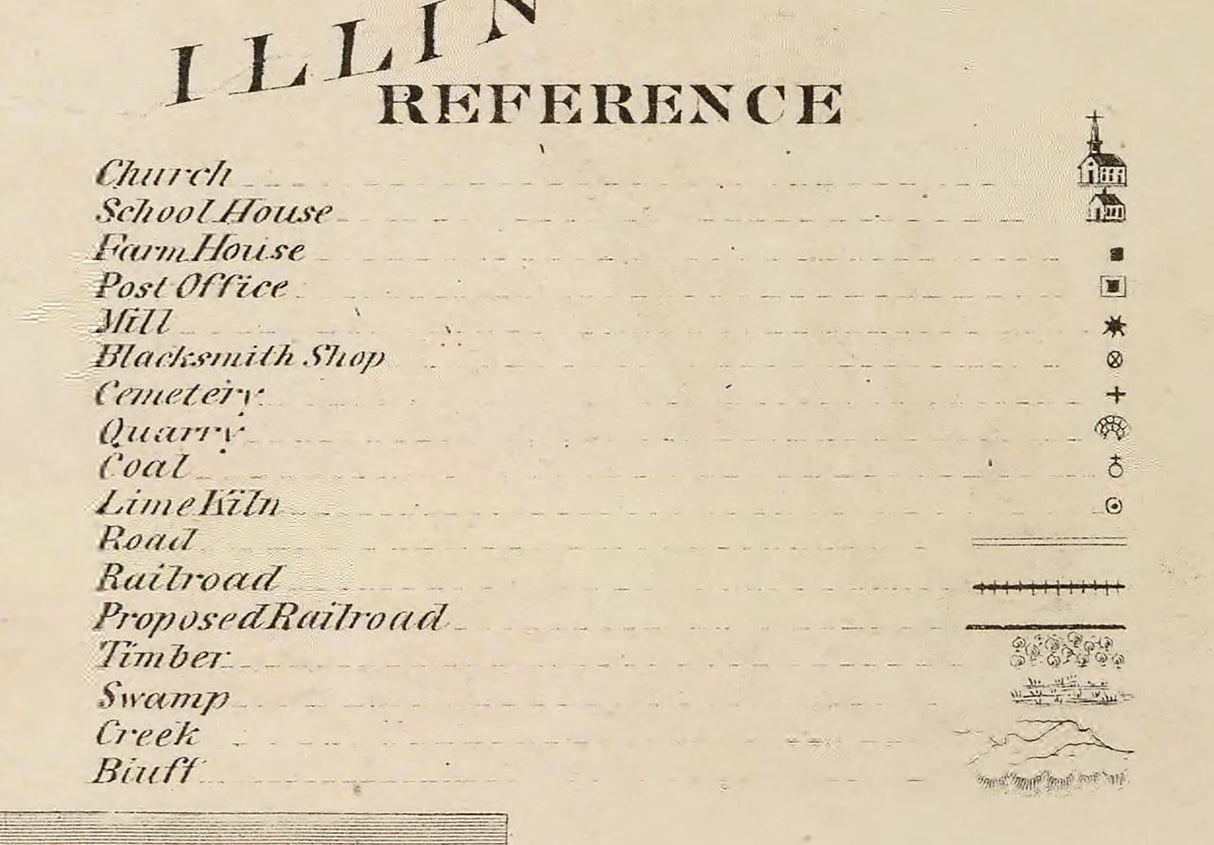 ILLIN
REFERENCE
Church
School House
Farm House
Post Office
Mill
Blacksmith Shop
Cemetery
Quarry
Coal
Lime Kiln
Road
Railroad
Proposed Railroad
Timber
Swamp
Creek
Bluff